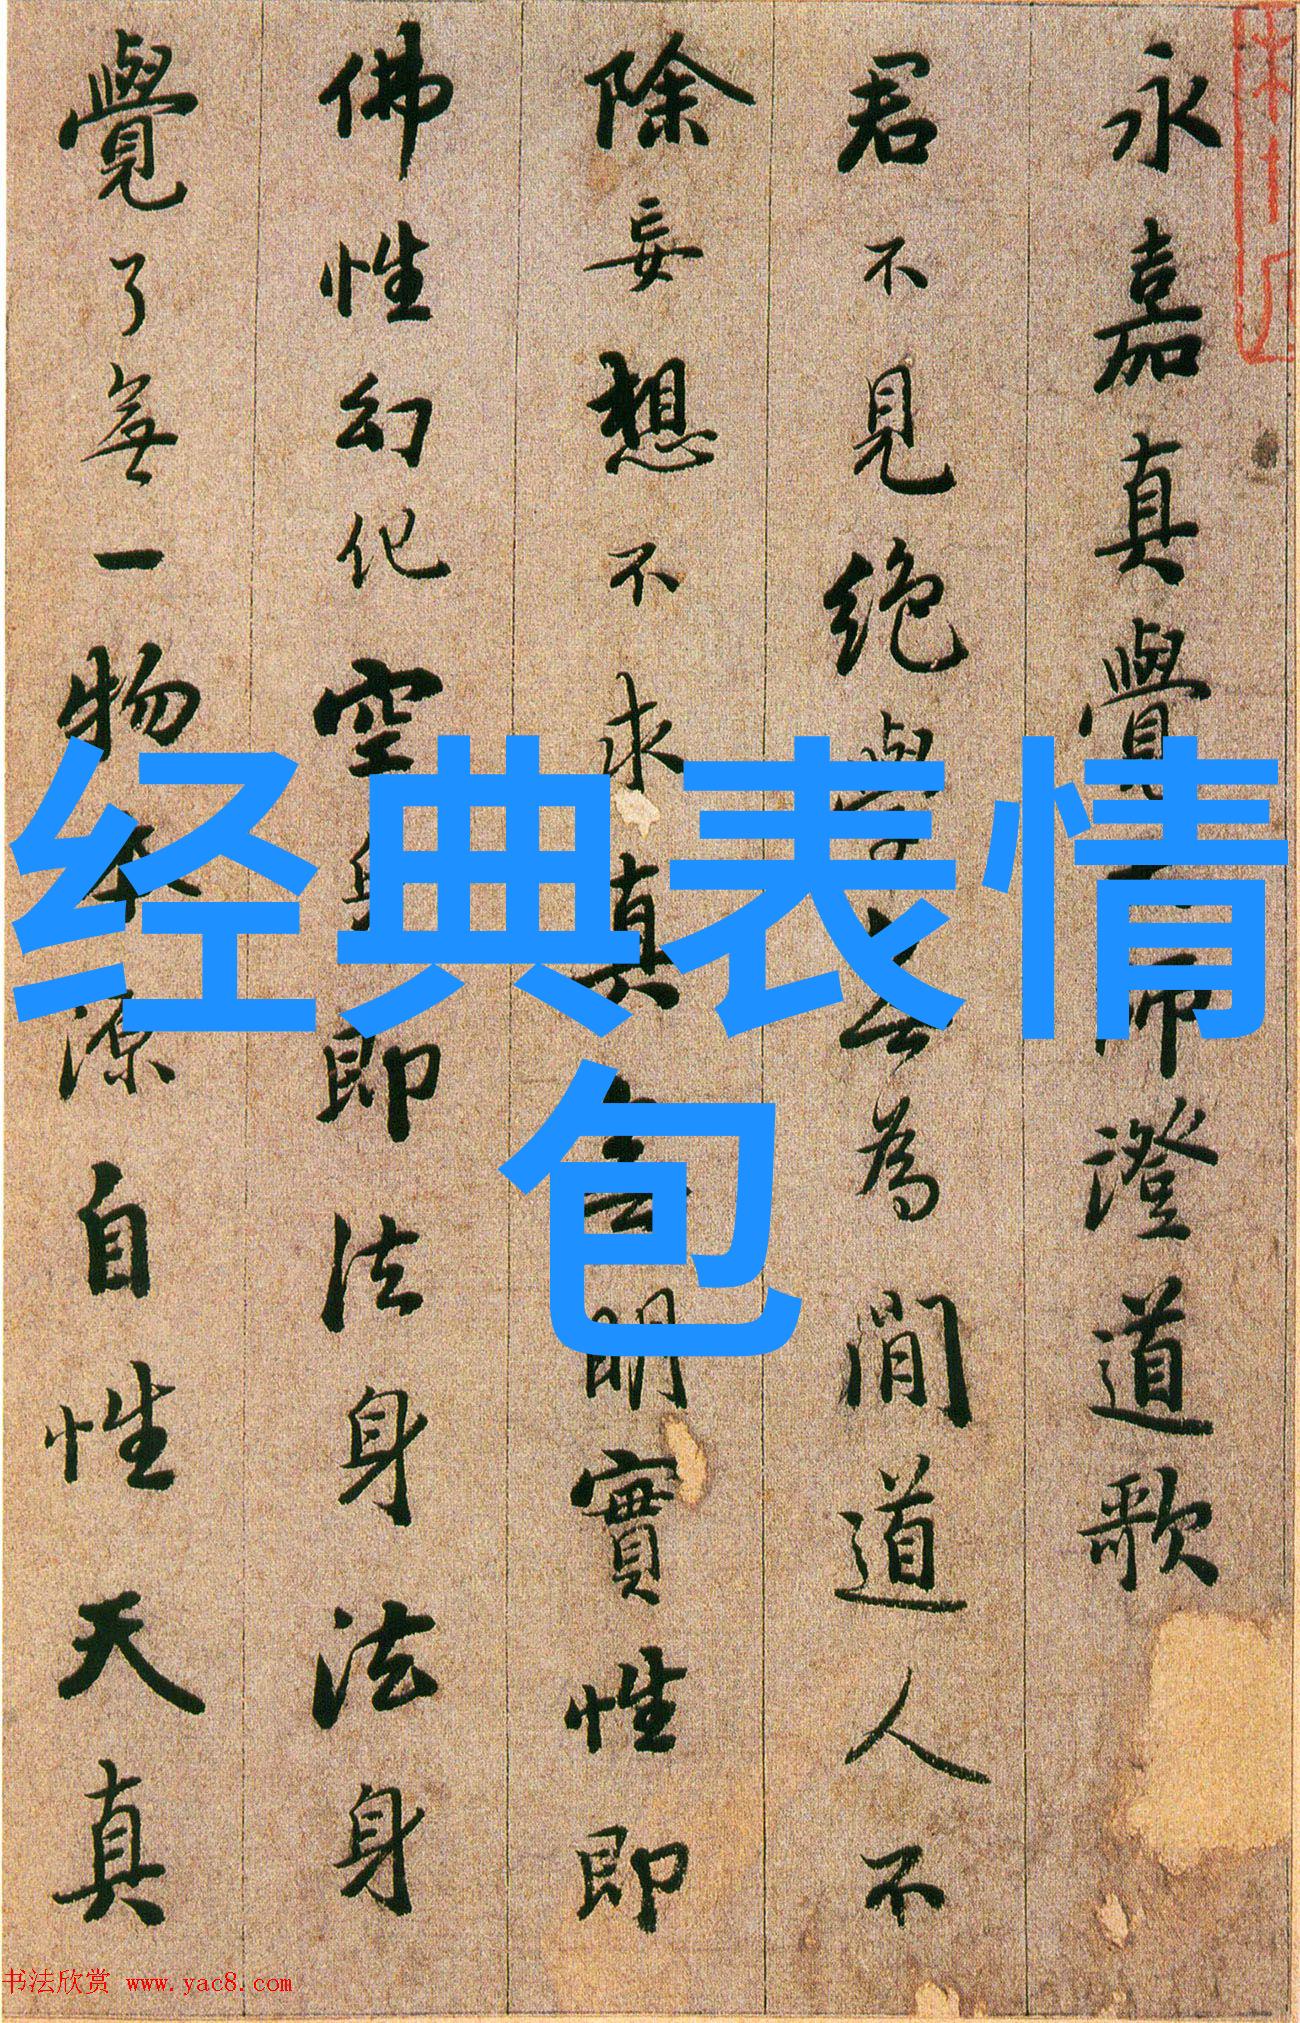 永嘉真覺師澄道歌
君不見絶學無為閒道人不
除妄想不求真無明實性即
佛性幻化空身即法身法身
覺了無一物本源自性天真
经典表情
包
书法欣赏 www.yac8.com